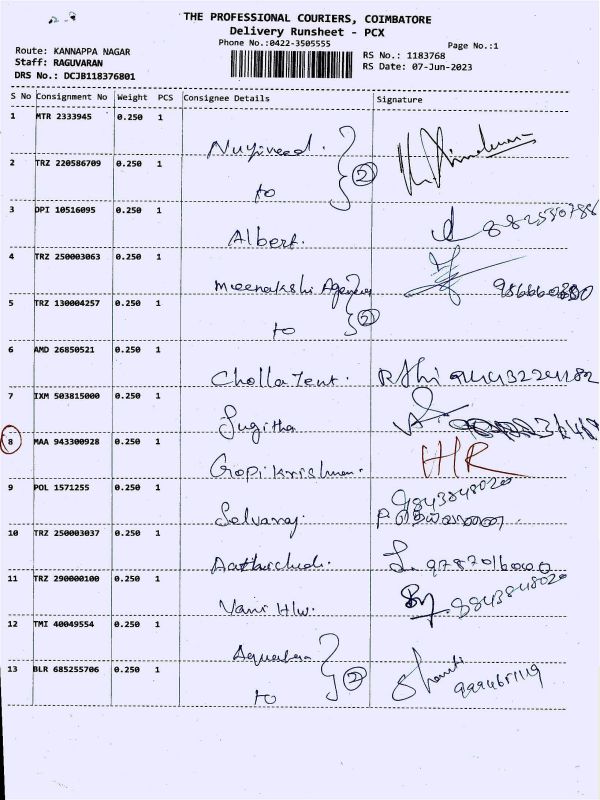 THE PROFESSIONAL COURIERS, COIMBATORE
Delivery Runsheet - PCX
Phone No.:0422-3505555
Page No.:1
Route: KANNAPPA NAGAR
Staff: RAGUVARAN
DRS No.: DCJB118376801
RS No.: 1183768
RS Date: 07-Jun-2023
S No Consignment No Weight PCS Consignee Details Signature
1 MTR 2333945 0.250 1
2 TRZ 220586709 0.250 1 to 2
3 DPI 10516095 0.250 1 Albert.
4 TRZ 250003063 0.250 1 Meenakshi
5 TRZ 130004257 0.250 1 to 2
6 AMD 26850521 0.250 1 Cholla Tent.
7 IXM 503815000 0.250 1 Sugitha
8 MAA 943300928 0.250 1 Gopi Krishnan.
9 POL 1571255 0.250 1 Selvaraj 9843848020
10 TRZ 250003037 0.250 1 9787016000
11 TRZ 290000100 0.250 1 Vani H/w.
12 TMI 40049554 0.250 1
13 BLR 685255706 0.250 1 to 2 Shanti